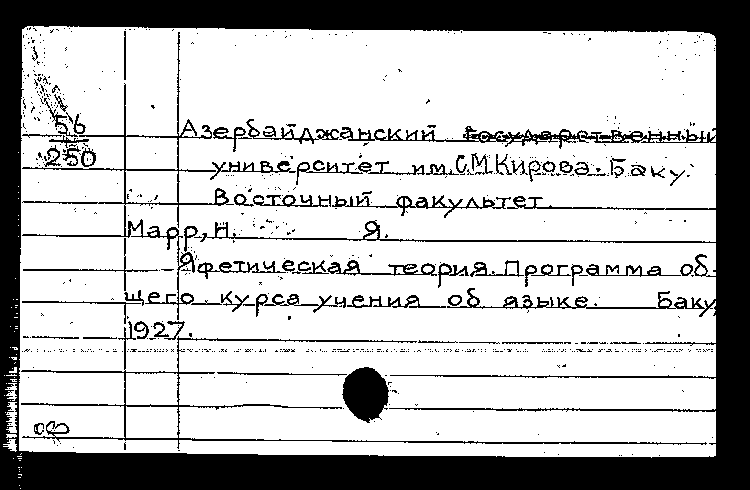 56
250
Азербайджанский государственный
университет им. С.М. Кирова. Баку.
Восточный факультет.
Марр, Н. Я.
Яфетическая теория. Программа об-
щего курса учения об языке. Баку,
1927.